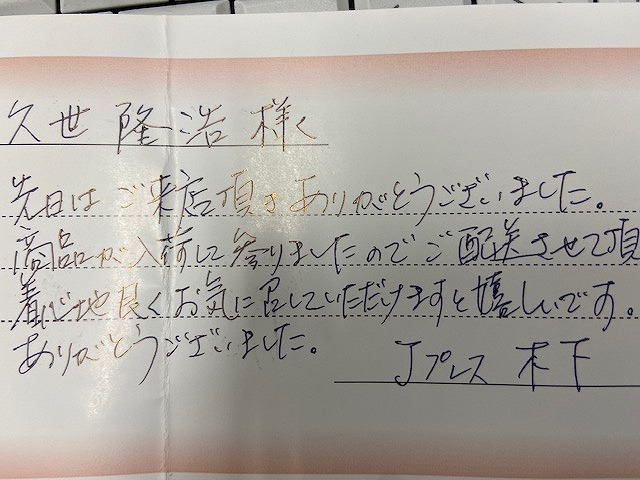 久世 隆浩 様
先日はご来店頂きありがとうございました。
商品が入荷して参りましたのでご配送させて頂
着心地良くお気に召していただけますと嬉しいです。
ありがとうございました。
Jプレス 木下